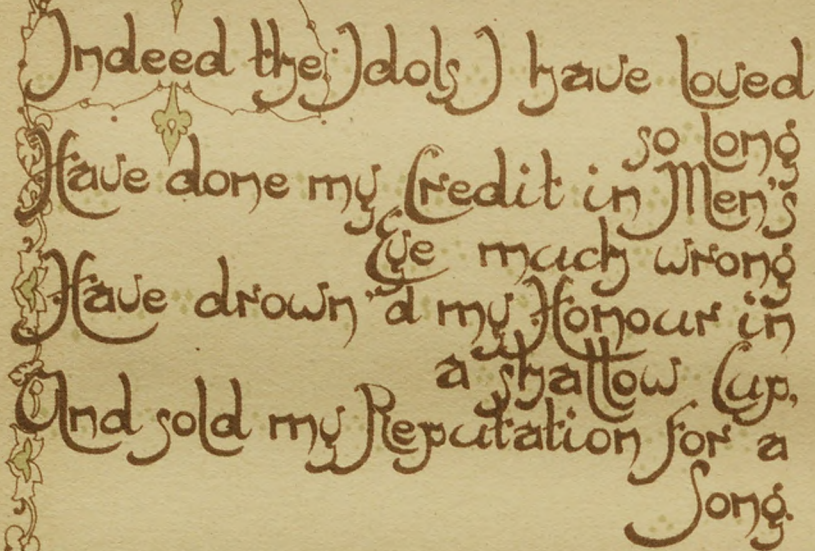 Indeed the Idols I have loved
so long
Have done my Credit in Men's
Eye much wrong
Have drown'd my Honour in
a shallow Cup,
And sold my Reputation for a
Song.